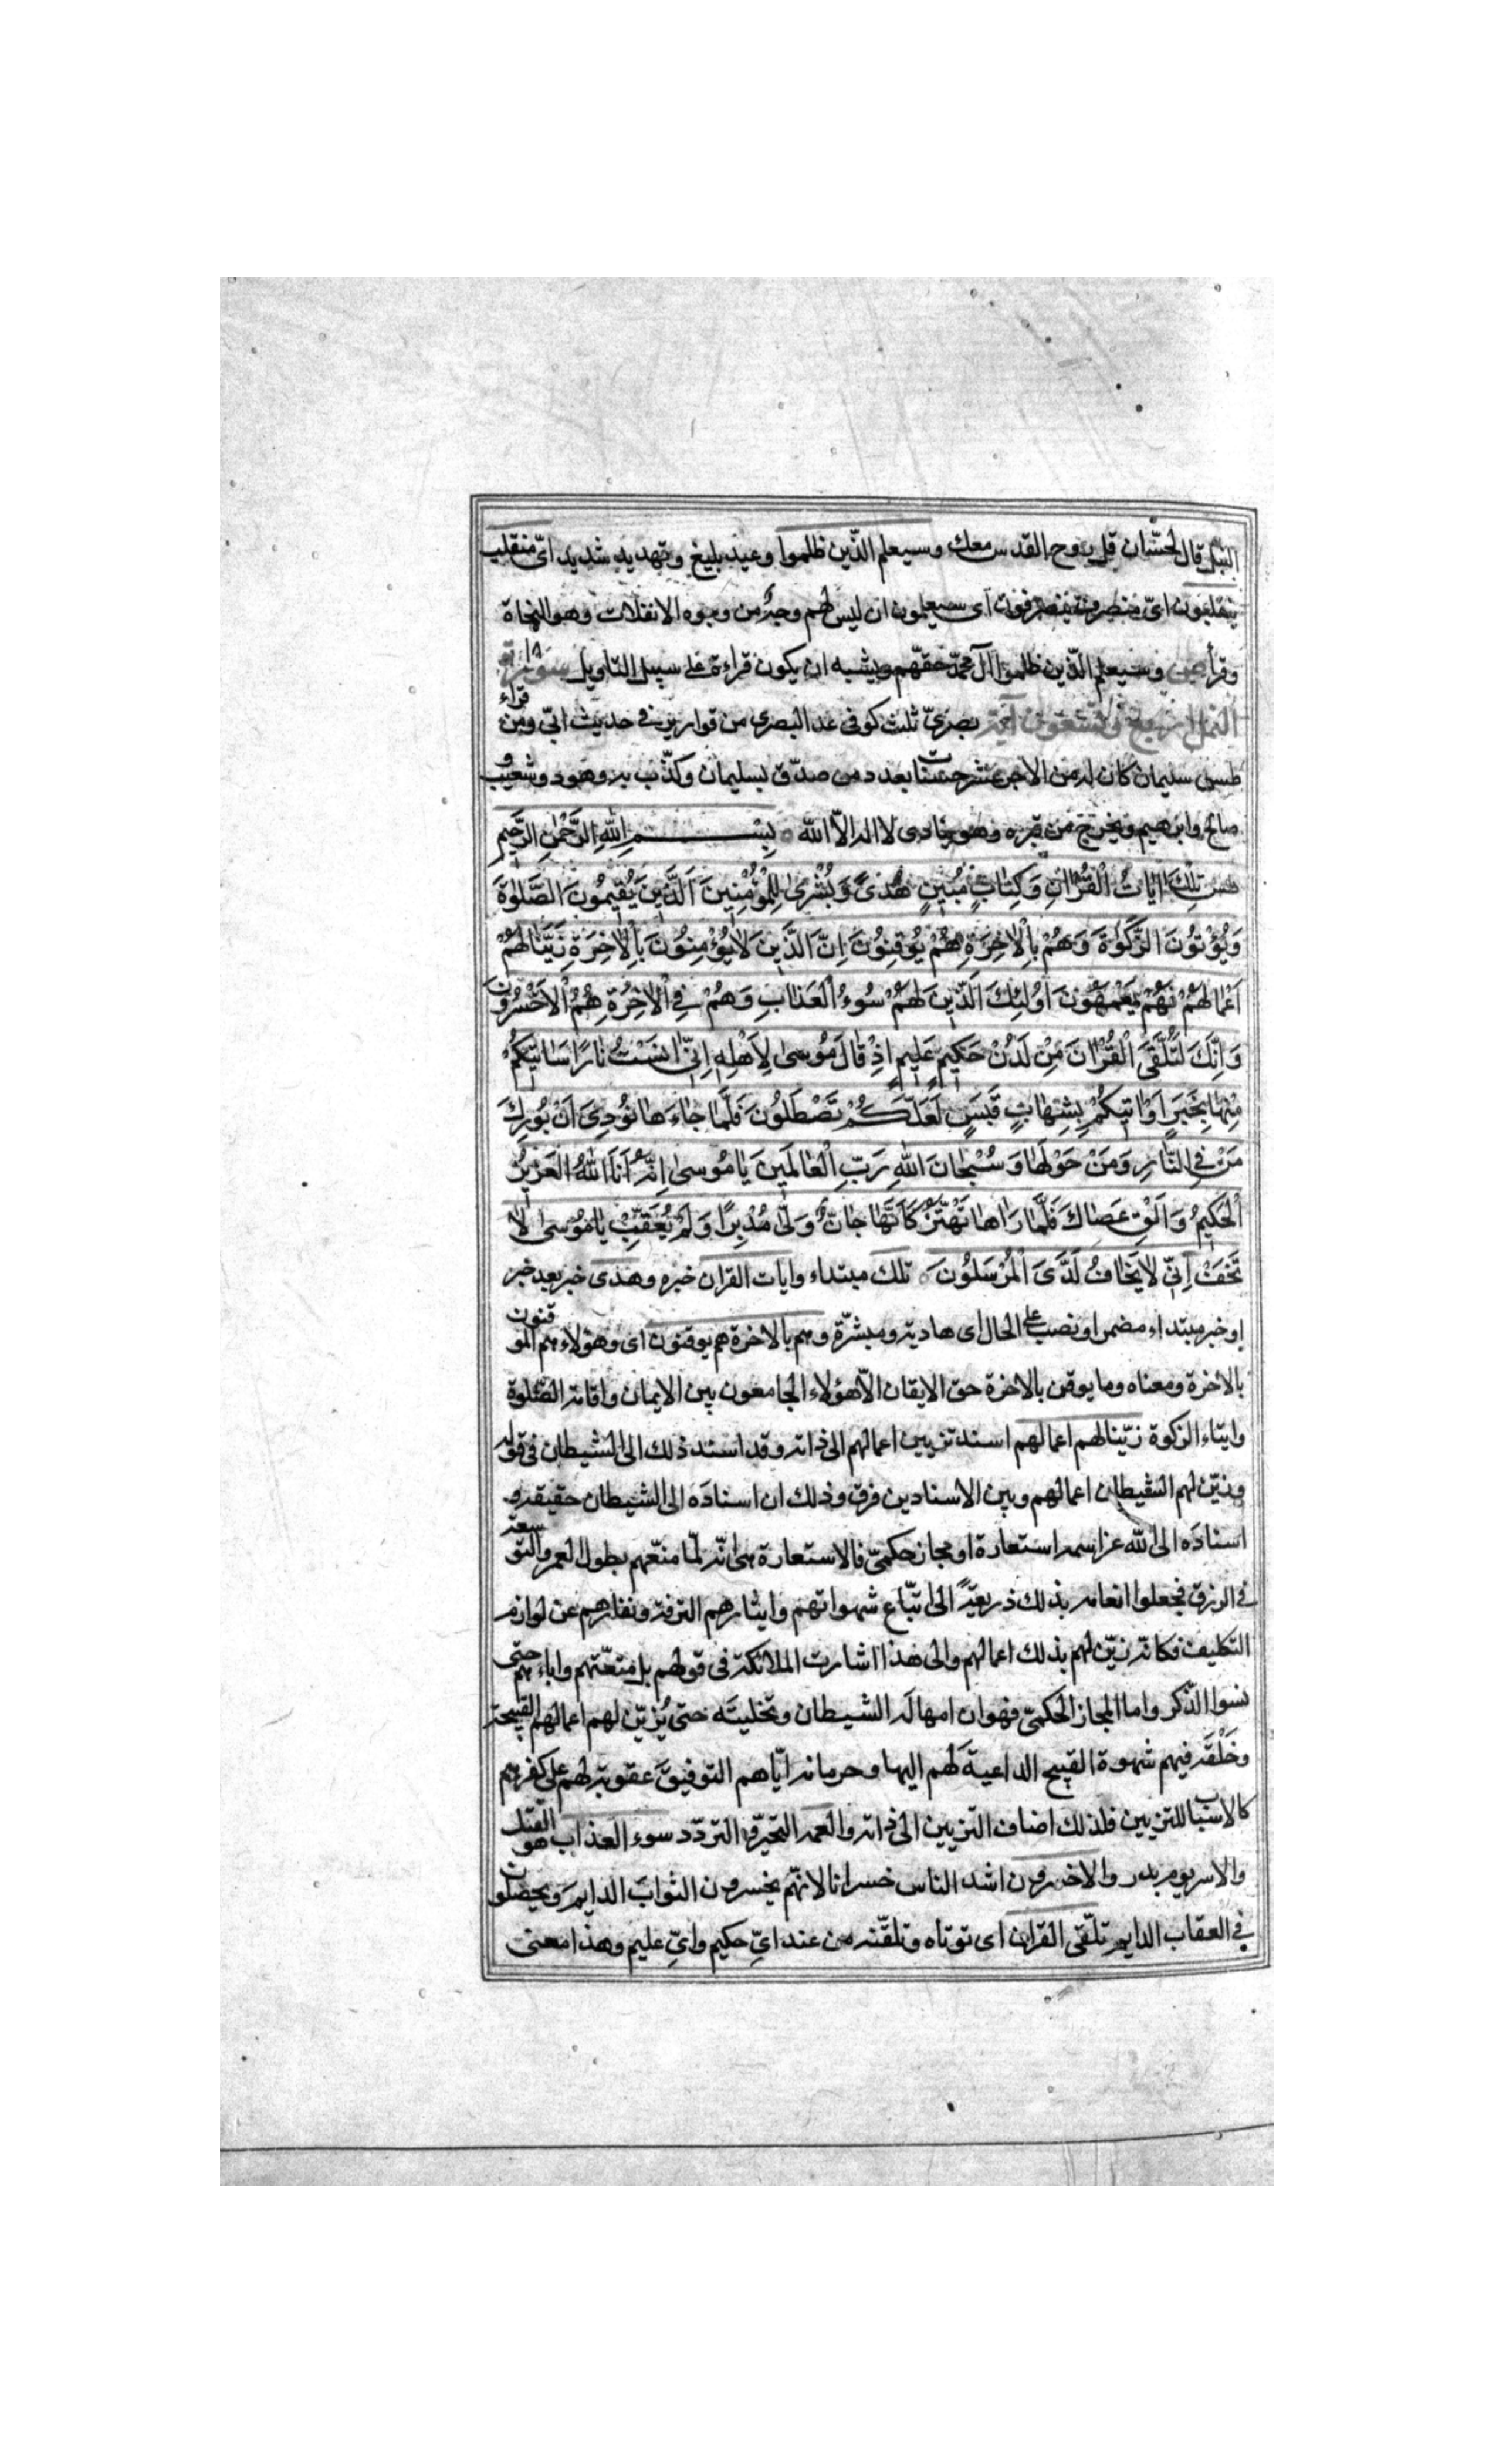 النبل قال لحسّان قل وروح القدس معك وسيعلم الّذين ظلموا وعيد بليغ وتهديد شديد اىّ منقلب
ينقلبون اىّ منصرف ينصرفون اى سيعلمون ان ليس لهم وجه من وجوه الانفلات وهو النجاة
وقرأ وسيعلم الّذين ظلموا آل محمّد حقّهم ويشبه ان يكون قراءة على سبيل التاويل سورة
النمل اربع وتسعون آية بصرىّ ثلث كوفى عد البصرى من قوارير فى حديث ابىّ ومن قراء
طس سليمان كان له من الاجر عشر حسنات بعدد من صدّق بسليمان وكذّب به وهود وشعيب و
صالح وابرهيم ويخرج من قبره وهو ينادى لا اله الاّ الله بِسْمِ اللهِ الرَّحْمٰنِ الرَّحِيمِ
طس تِلْكَ اٰيَاتُ الْقُرْاٰنِ وَكِتَابٍ مُبِينٍ هُدًى وَبُشْرٰى لِلْمُؤْمِنِينَ اَلَّذِينَ يُقِيمُونَ الصَّلٰوةَ
وَيُؤْتُونَ الزَّكٰوةَ وَهُمْ بِالْاٰخِرَةِ هُمْ يُوقِنُونَ اِنَّ الَّذِينَ لَا يُؤْمِنُونَ بِالْاٰخِرَةِ زَيَّنَّا لَهُمْ
اَعْمَالَهُمْ فَهُمْ يَعْمَهُونَ اُولٰئِكَ الَّذِينَ لَهُمْ سُوءُ الْعَذَابِ وَهُمْ فِى الْاٰخِرَةِ هُمُ الْاَخْسَرُونَ
وَاِنَّكَ لَتُلَقَّى الْقُرْاٰنَ مِنْ لَدُنْ حَكِيمٍ عَلِيمٍ اِذْ قَالَ مُوسٰى لِاَهْلِهِ اِنِّى اٰنَسْتُ نَارًا سَاٰتِيكُمْ
مِنْهَا بِخَبَرٍ اَوْ اٰتِيكُمْ بِشِهَابٍ قَبَسٍ لَعَلَّكُمْ تَصْطَلُونَ فَلَمَّا جَاءَهَا نُودِىَ اَنْ بُورِكَ
مَنْ فِى النَّارِ وَمَنْ حَوْلَهَا وَسُبْحَانَ اللهِ رَبِّ الْعَالَمِينَ يَا مُوسٰى اِنَّهُ اَنَا اللهُ الْعَزِيزُ
الْحَكِيمُ وَاَلْقِ عَصَاكَ فَلَمَّا رَاٰهَا تَهْتَزُّ كَاَنَّهَا جَانٌّ وَلّٰى مُدْبِرًا وَلَمْ يُعَقِّبْ يَا مُوسٰى لَا
تَخَفْ اِنِّى لَا يَخَافُ لَدَىَّ الْمُرْسَلُونَ تلك مبتداء وايات القران خبره وهدى خبر بعد خبر
او خبر مبتداء مضمر او نصب على الحال اى هادية ومبشّرة وهم بالاخرة هم يوقنون اى وهؤلاء هم الموقنون
بالاخرة ومعناه وما يوقن بالاخرة حق الايقان الاّ هؤلاء الجامعون بين الايمان واقامة الصّلوة
وايتاء الزكوة زيّنا لهم اعمالهم اسند تزيين اعمالهم الى ذاته وقد اسند ذلك الى الشيطان فى قوله
وزيّن لهم الشيطان اعمالهم وبين الاسنادين فرق وذلك ان اسنادَه الى الشيطان حقيقة و
اسنادَه الى الله عز اسمه استعارة او مجاز حكمىّ فالاستعارة هى انّه لمّا متّعهم بطول العمر والتوسعة
فى الرزق فجعلوا انعامه بذلك ذريعةً الى اتّباع شهواتهم وايثارهم الترفه ونفارهم عن لوازم
التكليف فكانه زيّن لهم بذلك اعمالهم والى هذا اشارت الملائكة فى قولهم بل متعّتهم واباءهم حتى
نسوا الذّكر واما المجاز الحكمىّ فهو ان امهالَه الشيطان وتخليتَه حتى يُزيّن لهم اعمالهم القبيحة
وخَلْقَه فيهم شهوة القبيح الداعيةَ لهم اليها وحرمانه ايّاهم التوفيقَ عقوبة لهم على كفرهم
كالاسباب للتزيين فلذلك اضاف التزيين الى ذاته والعمه التحيّر والتردّد سوء العذاب هو القتل
والاسر يوم بدر والاخسرون اشد الناس خسرانا لانّهم يخسرون الثوابَ الدايم ويحصلون
فى العقاب الدايم تلقّى القران اى توتاه وتلقّنه من عند اىّ حكيم واىّ عليم وهذا معنى